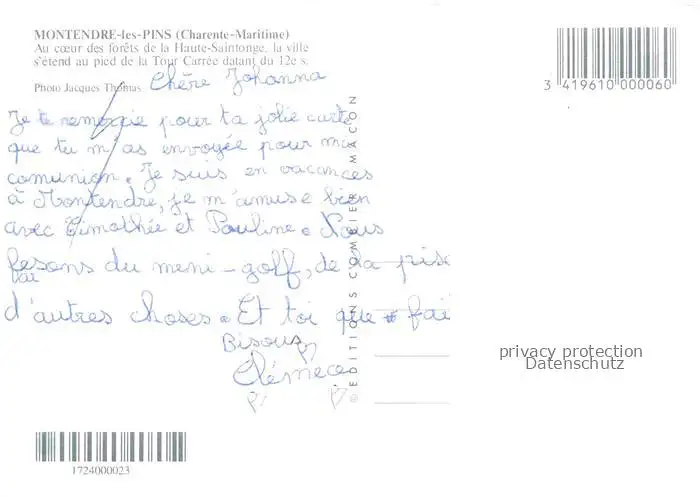 MONTENDRE-les-PINS (Charente-Maritime)
Au cœur des forêts de la Haute-Saintonge, la ville
s'étend au pied de la Tour Carrée datant du 12e s.
Photo Jacques Thomas
Chère Johanna
Je te remercie pour ta jolie carte
que tu m'as envoyée pour ma
comunion. Je suis en vacances
à Montendre, je m'amuse bien
avec Timothée et Pauline. Nous
fesons du meni-golf, de la
fai
d'autres choses. Et toi que fai
Bisous
© EDITIONS COMBIER MACON
3 419610 000060
privacy protection
Datenschutz
1724000023